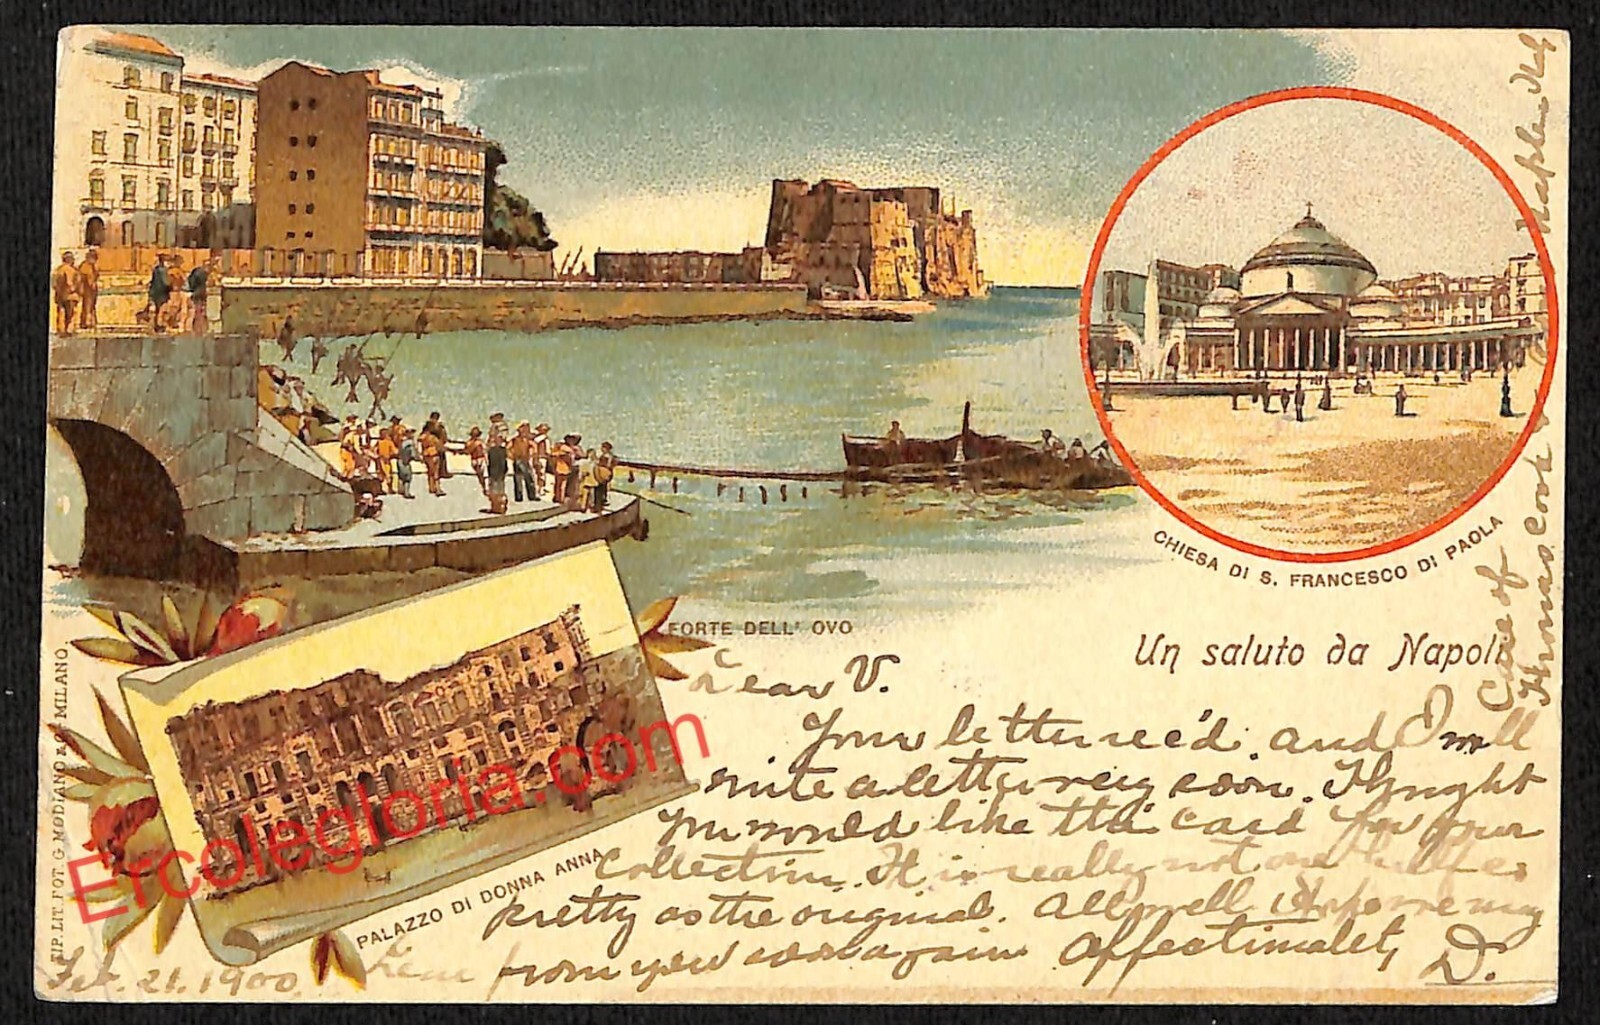 CHIESA DI S. FRANCESCO DI PAOLA
FORTE DELL' OVO
Un saluto da Napoli
PALAZZO DI DONNA ANNA
TIP. LIT. FOT. G. MODIANO & C. MILANO.
Ercolegloria.com
Dear V.
Your letter rec'd. and I will
write a letter very soon. Thought
you would like this card for your
collection. It is really not one half as
pretty as the original. All well
hear from you soon again Affectionately,
D.
Feb. 21. 1900
Care of
Thomas Cook &
Naples Italy